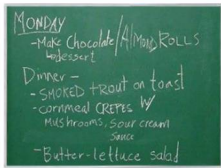 MONDAY
-Make Chocolate/Almond ROLLS
dessert
Dinner-
-SMOKED tROUT on toast
-cornmeal CREPES W/
Mushrooms, Sour cream
Sauce
-Butter-lettuce salad